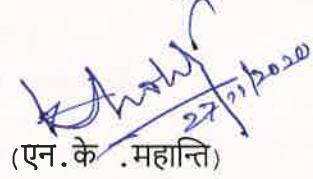 27/11/2020
(एन.के .महान्ति)